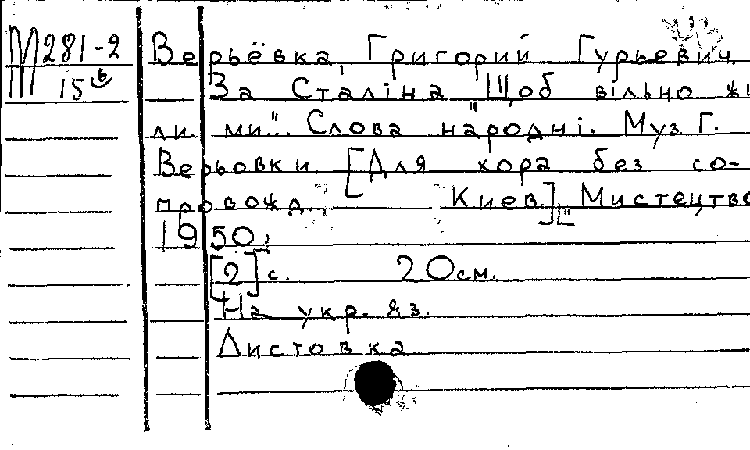 М281-2
15
Верьёвка, Григорий Гурьевич
За Сталіна "Щоб вільно жи
ли ми". Слова народні. Муз Г.
Верьовки. [Для хора без со-
провожд. Киев], "Мистецтво
1950;
[2] с. 20см.
На укр. яз.
Листовка